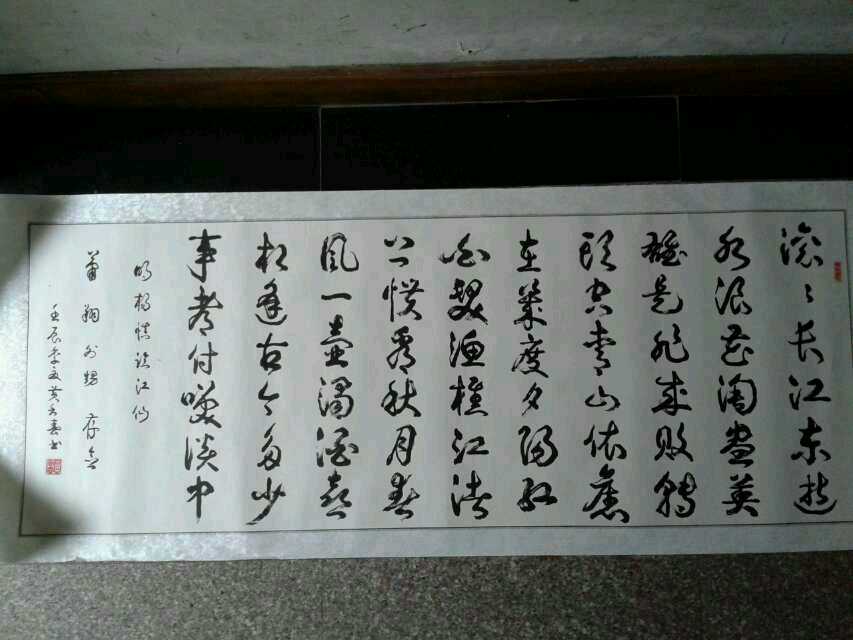 滚滚长江东逝
水浪花淘盡英
雄是非成败轉
头空青山依舊
在幾度夕陽红
白髮渔樵江渚
上惯看秋月春
风一壶濁酒喜
相逢古今多少
事都付笑谈中
明杨慎临江仙
萧翔外甥 存念
壬辰季夏黄书